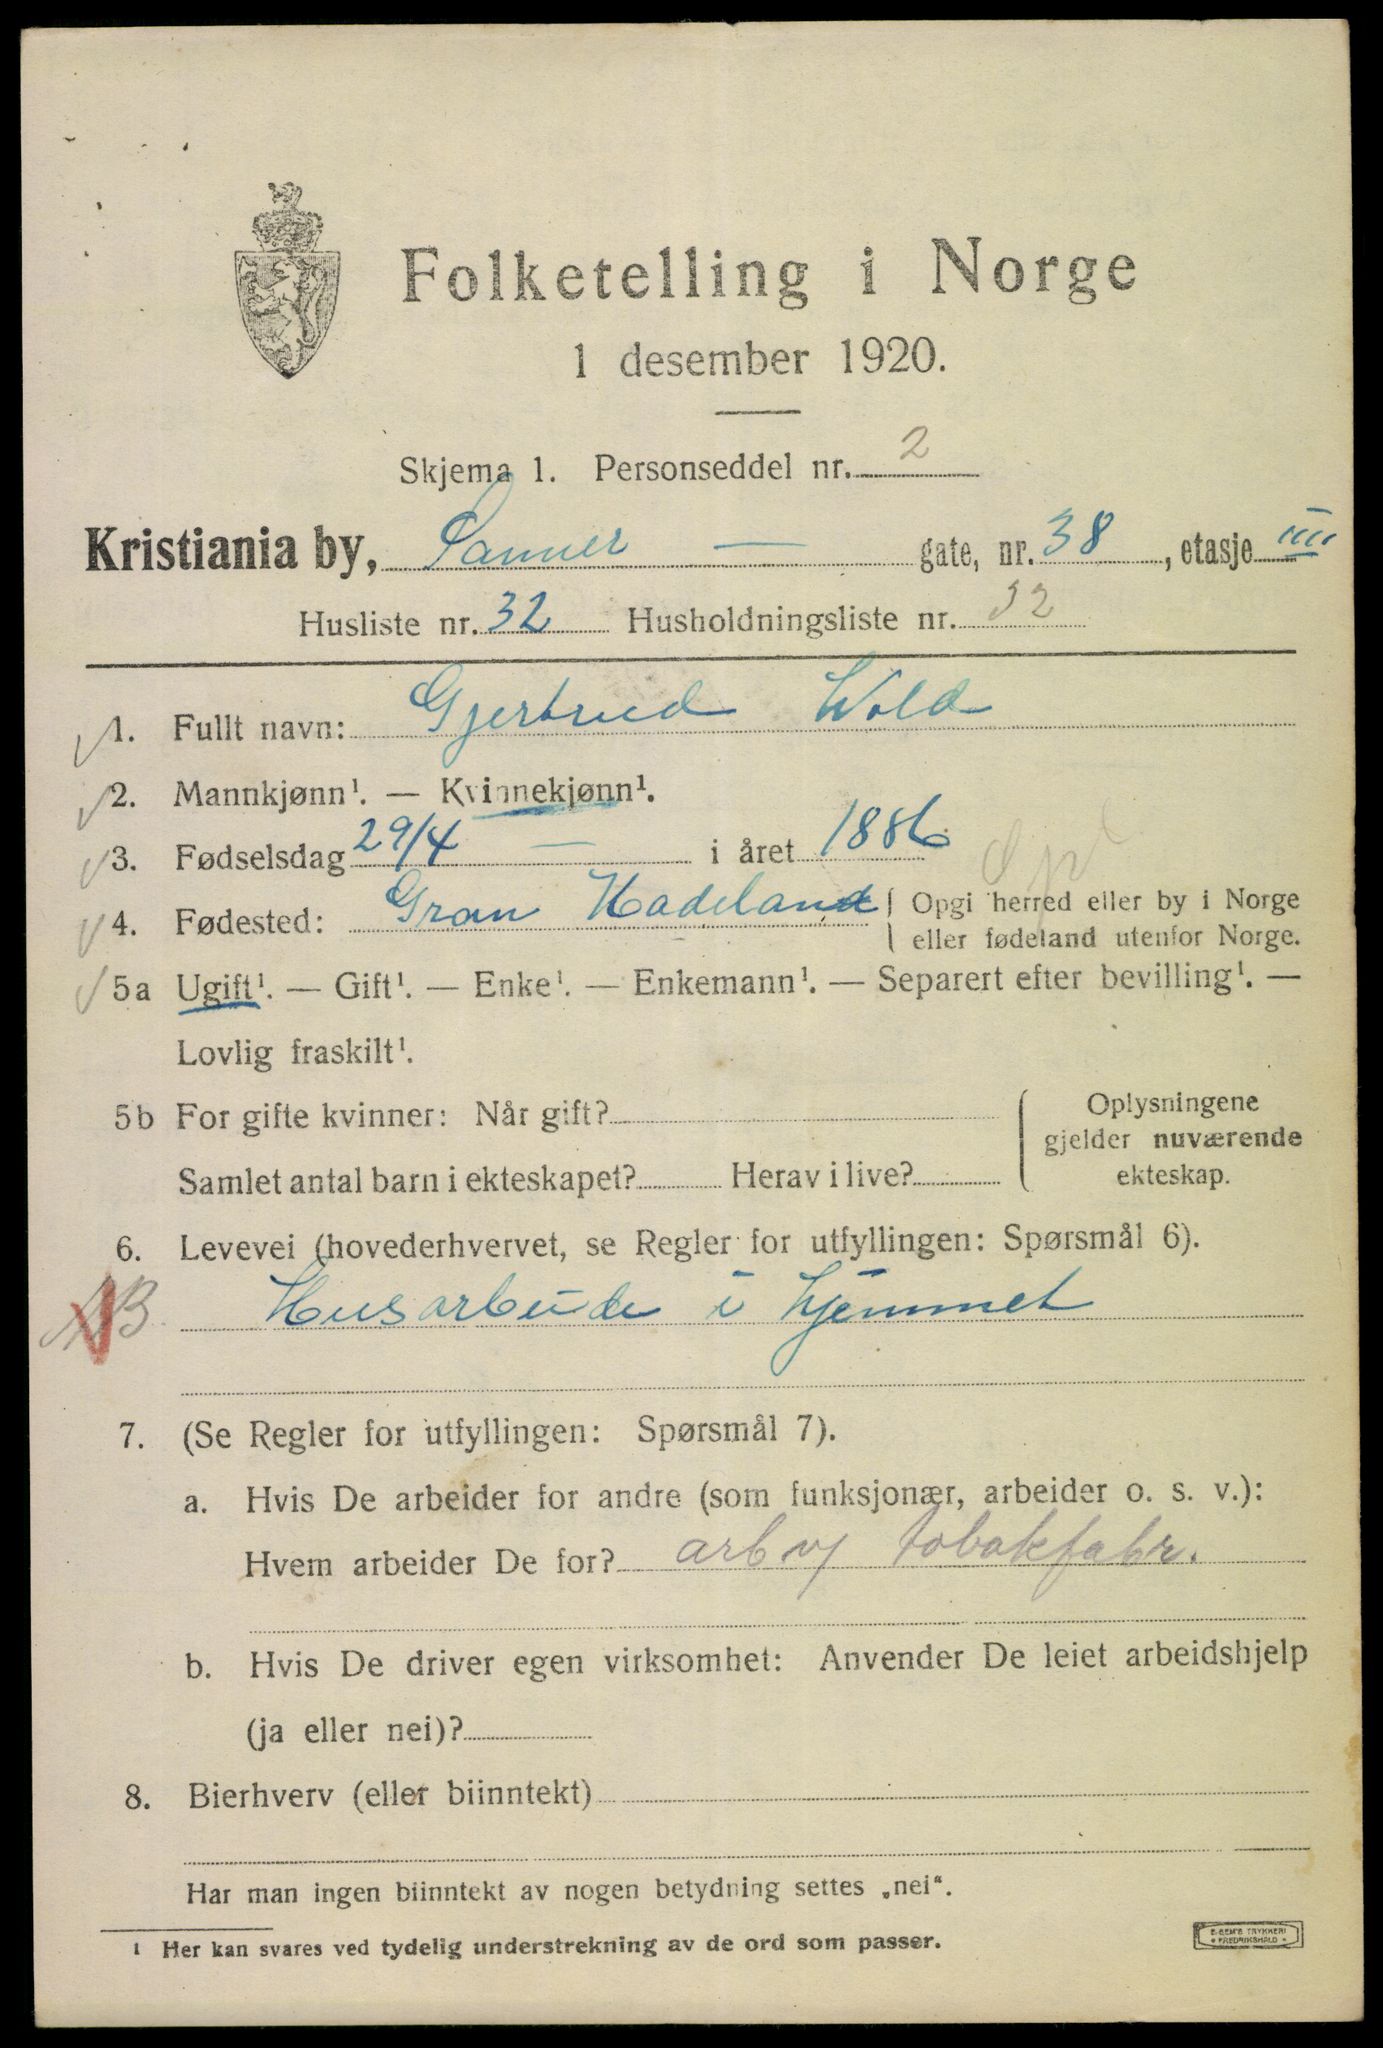 Folketelling i Norge
1 desember 1920.
Skjema 1. Personseddel nr. 2
Kristiania by, Sanner — gate, nr. 38, etasje IIII
Husliste nr. 32 Husholdningsliste nr. 32
1. Fullt navn: Gjertrud Wold
2. Mannkjønn¹. — Kvinnekjønn¹.
3. Fødselsdag 29/4 — i året 1886
4. Fødested: Gran Hadeland { Opgi herred eller by i Norge
eller fødeland utenfor Norge.
5a Ugift¹. — Gift¹. — Enke¹. — Enkemann¹. — Separert efter bevilling¹. —
Lovlig fraskilt¹.
5b For gifte kvinner: Når gift? { Oplysningene
gjelder nuværende
Samlet antal barn i ekteskapet? Herav i live? ekteskap.
6. Levevei (hovederhvervet, se Regler for utfyllingen: Spørsmål 6).
Husarbeide i hjemmet
7. (Se Regler for utfyllingen: Spørsmål 7).
a. Hvis De arbeider for andre (som funksjonær, arbeider o. s. v.):
Hvem arbeider De for? arb v/ tobakfabr.
b. Hvis De driver egen virksomhet: Anvender De leiet arbeidshjelp
(ja eller nei)?
8. Bierhverv (eller biinntekt)
Har man ingen biinntekt av nogen betydning settes „nei“.
¹ Her kan svares ved tydelig understrekning av de ord som passer.
E. SEM'S TRYKKERI
• FREDRIKSHALD •